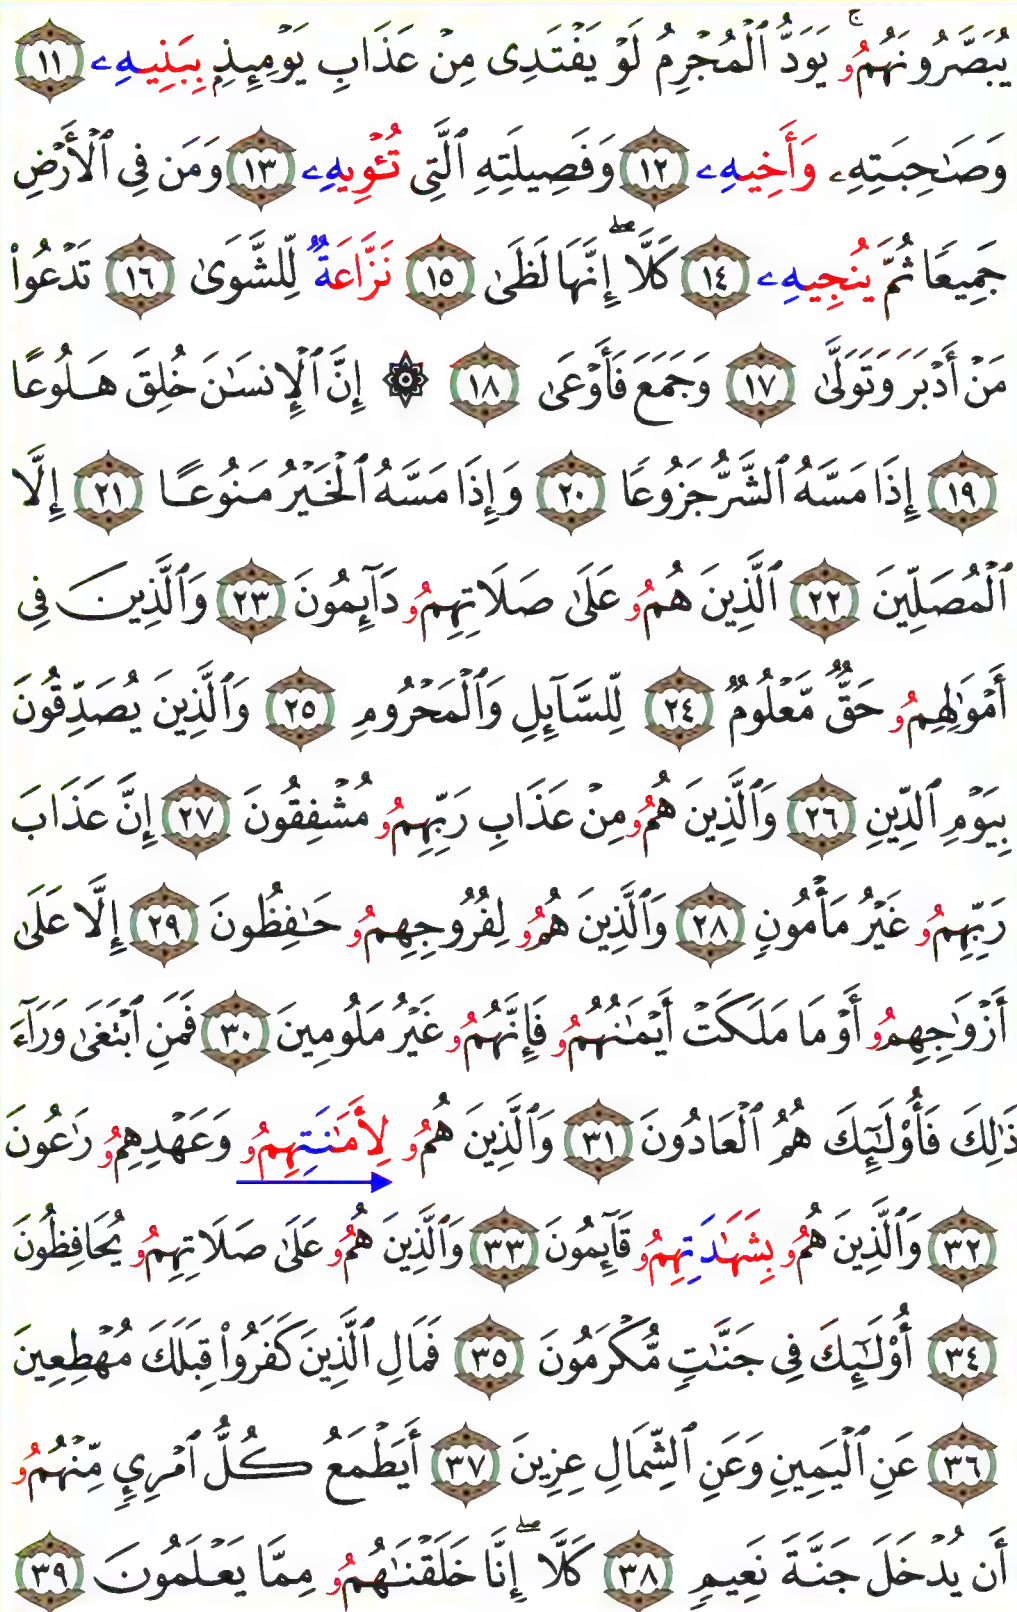 يُبَصَّرُونَهُمُۥۚ يَوَدُّ ٱلْمُجْرِمُ لَوْ يَفْتَدِى مِنْ عَذَابِ يَوْمِئِذِۭ بِبَنِيهِۦ ١١
وَصَٰحِبَتِهِۦ وَأَخِيهِۦ ١٢ وَفَصِيلَتِهِ ٱلَّتِى تُـْٔوِيهِۦ ١٣ وَمَن فِى ٱلْأَرْضِ
جَمِيعًا ثُمَّ يُنجِيهِۦ ١٤ كَلَّاۖ إِنَّهَا لَظَىٰ ١٥ نَزَّاعَةٌ لِّلشَّوَىٰ ١٦ تَدْعُوا۟
مَنْ أَدْبَرَ وَتَوَلَّىٰ ١٧ وَجَمَعَ فَأَوْعَىٰ ١٨ ۞ إِنَّ ٱلْإِنسَٰنَ خُلِقَ هَلُوعًا
١٩ إِذَا مَسَّهُ ٱلشَّرُّ جَزُوعًا ٢٠ وَإِذَا مَسَّهُ ٱلْخَيْرُ مَنُوعًا ٢١ إِلَّا
ٱلْمُصَلِّينَ ٢٢ ٱلَّذِينَ هُمُۥ عَلَىٰ صَلَاتِهِمُۥ دَآئِمُونَ ٢٣ وَٱلَّذِينَ فِى
أَمْوَٰلِهِمُۥ حَقٌّ مَّعْلُومٌ ٢٤ لِّلسَّآئِلِ وَٱلْمَحْرُومِ ٢٥ وَٱلَّذِينَ يُصَدِّقُونَ
بِيَوْمِ ٱلدِّينِ ٢٦ وَٱلَّذِينَ هُمُۥ مِنْ عَذَابِ رَبِّهِمُۥ مُشْفِقُونَ ٢٧ إِنَّ عَذَابَ
رَبِّهِمُۥ غَيْرُ مَأْمُونٍ ٢٨ وَٱلَّذِينَ هُمُۥ لِفُرُوجِهِمُۥ حَٰفِظُونَ ٢٩ إِلَّا عَلَىٰ
أَزْوَٰجِهِمُۥ أَوْ مَا مَلَكَتْ أَيْمَٰنُهُمُۥ فَإِنَّهُمُۥ غَيْرُ مَلُومِينَ ٣٠ فَمَنِ ٱبْتَغَىٰ وَرَآءَ
ذَٰلِكَ فَأُو۟لَٰٓئِكَ هُمُ ٱلْعَادُونَ ٣١ وَٱلَّذِينَ هُمُۥ لِأَمَٰنَتِهِمُۥ وَعَهْدِهِمُۥ رَٰعُونَ
٣٢ وَٱلَّذِينَ هُمُۥ بِشَهَٰدَتِهِمُۥ قَآئِمُونَ ٣٣ وَٱلَّذِينَ هُمُۥ عَلَىٰ صَلَاتِهِمُۥ يُحَافِظُونَ
٣٤ أُو۟لَٰٓئِكَ فِى جَنَّٰتٍ مُّكْرَمُونَ ٣٥ فَمَالِ ٱلَّذِينَ كَفَرُوا۟ قِبَلَكَ مُهْطِعِينَ
٣٦ عَنِ ٱلْيَمِينِ وَعَنِ ٱلشِّمَالِ عِزِينَ ٣٧ أَيَطْمَعُ كُلُّ ٱمْرِئٍ مِّنْهُمُۥ
أَن يُدْخَلَ جَنَّةَ نَعِيمٍ ٣٨ كَلَّاۖ إِنَّا خَلَقْنَٰهُمُۥ مِمَّا يَعْلَمُونَ ٣٩